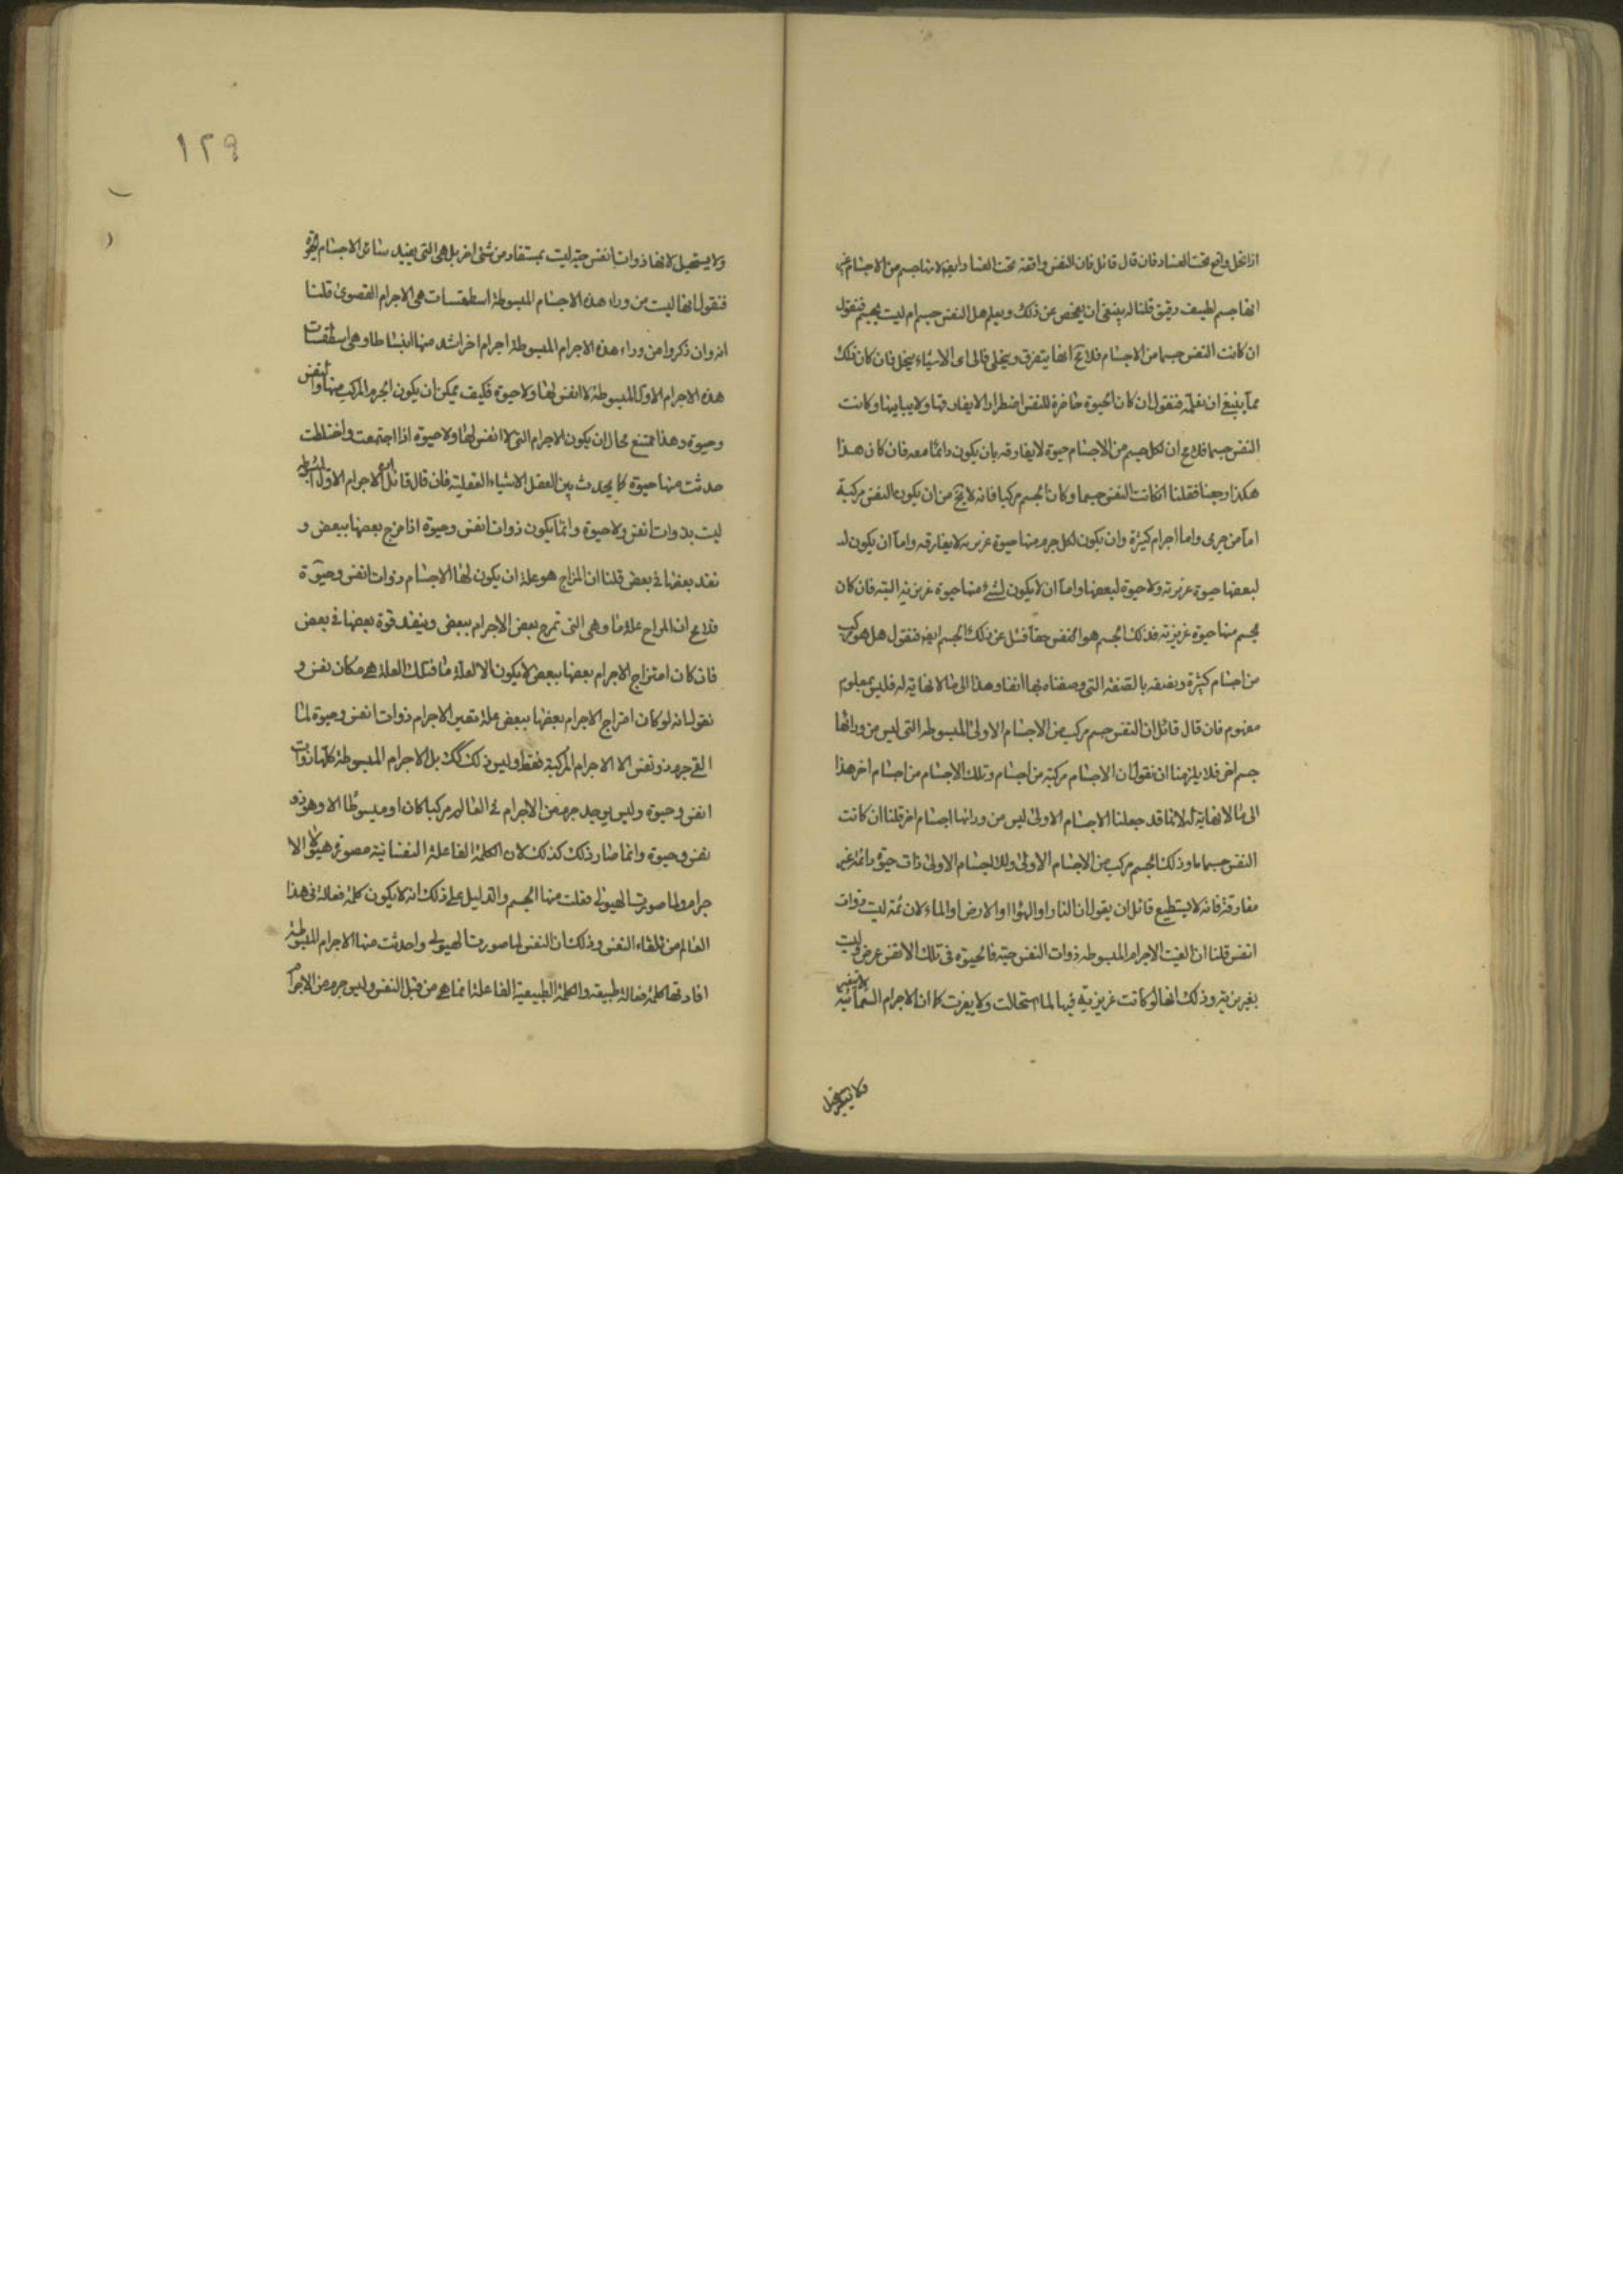 اذا انحل واقع تحت الفساد فان قال قائل فان النفس واقعة تحت الفساد ايضا لانها جسم من الاجسام غير
انها جسم لطيف رقيق قلنا له ينبغى ان يفحص عن ذلك ويعلم هل النفس جسم ام ليت بجسم فنقول
ان كانت النفس جسما من الاجسام فلا مح انها يتفرق وينحل فالى اى الاشياء ينحل فان كان ذلك
مما ينبغى ان نعلمه فنقول ان كان الحيوة حاضرة للنفس اضطرارا لا يفارقها ولا يباينها وكانت
النفس جسما فلا مح ان لكل جسم من الاجسام حيوة لا يفارقه بان يكون دائما معه فان كان هذا
هكذا رجعنا فقلنا ان كانت النفس جسما وكان الجسم مركبا فانه لا يخ من ان يكون النفس مركبة
اما من جرمى واما اجرام كثيرة وان يكون لكل جرم منها حيوة غريزية لا يفارقه واما ان يكون
لبعضها حيوة غريزية ولا حيوة لبعضها واما ان لا يكون لشئ منها حيوة غريزية البته فان كان
لجسم منها حيوة غريزية فذلك الجسم هو النفس حقا فنسئل عن ذلك الجسم ايضا فنقول هل هو مركب
من اجسام كثيرة ونصفه بالصفة التى وصفناه بها انفا وهذا الى ما لا نهاية له فليس بمعلوم
مفهوم فان قال قائل ان النفس جسم مركب من الاجسام الاولى المبسوطه التى ليس من ورائها
جسم اخر فلا يلزمنا ان نقول ان الاجسام مركبة من اجسام وتلك الاجسام من اجسام اخر هذا
الى ما لا نهاية له لانا قد جعلنا الاجسام الاولى ليس من ورائها اجسام اخر قلنا ان كانت
النفس جسما ما وذلك الجسم مركب من الاجسام الاولى وللاجسام الاولى ذات حيوة دائمة غير
مفارقة فانه لا يستطيع قائل ان يقول ان النار او الهواء او الارض او الماء لان ثمه ليت ذوات
انفس قلنا ان الفيت الاجرام المبسوطه ذوات النفس حيه فالحيوة فى تلك الانفس عرض وليت
بغريزية وذلك انها لو كانت غريزية فيها لما استحالت ولا يغرت كما ان الاجرام السمائية لا يتغير
فلا يستحيل
١٢٩
ولا يستحيل لانها ذوات انفس حيه ليت بمستفاد من شئ اخر بل هى التى يفيد سائر الاجسام الحيوة
فنقول انها ليت من وراء هذه الاجسام المبسوطة اسطقسات هى الاجرام القصوى قلنا
انه وان ذكروا من وراء هذه الاجرام المبسوطة اجرام اخر اشد منها انبساطا وهى اسطقسات
هذه الاجرام الاول المبسوطة لا انفس لها ولا حيوة فكيف يمكن ان يكون الجرم المركب منها ذا نفس
وحيوة وهذا ممتنع محال ان يكون الاجرام التى لا انفس لها ولا حيوة اذا اجتمعت واختلطت
حدثت منها حيوة كما يحدث بين العقل الاشياء العقلية فان قال قائل ان الاجرام الاول المبسوطة
ليت بذوات انفس ولا حيوة وانما يكون ذوات انفس وحيوة اذا مزج بعضها ببعض و
نفذ بعضها فى بعض قلنا ان المزاج هو علة ان يكون لها الاجسام ذوات انفس وحيوة
فلا مح ان للمزاج علة ما وهى التى تمزج بعض الاجرام ببعض وينفذ قوة بعضها فى بعض
فان كان امتزاج الاجرام بعضها ببعض لا يكون الا لعلة ما فتلك العلة هى مكان نفس و
نقول انه لو كان امتزاج الاجرام بعضها ببعض علة تصير الاجرام ذوات انفس وحيوة لما
القى جرم ذو نفس الا الاجرام المركبة فقط وليس ذلك كك بل الاجرام المبسوطة كلها ذوات
انفس وحيوة وليس يوجد جرم من الاجرام فى العالم مركبا كان او مبسوطا الا وهو ذو
نفس وحيوة وانما صار ذلك كذلك لان الكلمة الفاعلة النفسانية مصورة هيولى الا
جرام ولما صورت الهيولى فعلت منها الجسم والدليل على ذلك انه لا يكون كلمة فعالة فى هذا
العالم من تلقاء النفس وذلك ان النفس لما صورت الهيولى واحدثت منها الاجرام المبسوطة
افادتها كلمة فعالة طبيعية والكلمة الطبيعية الفاعلة انما هى من قبل النفس وليس جرم من الاجرام